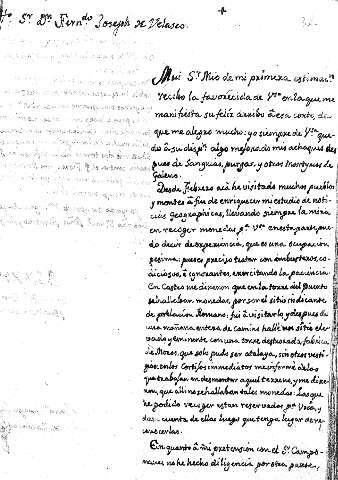 Sr. Dn. Ferndo Joseph de Velasco.
Mui Sr. Mio de mi primera estimacn.
recibo la favorecida de Vsa en la que me
manifiesta su feliz arribo à esa corte, de
que me alegro mucho: yo siempre de Vsa que-
do à su dispn. algo mejorado mis achaques des
pues de Sangrias, purgas, y otros
Galeno.
Desde Febrero acà he visitado muchos pueblos
y montes à fin de enriquecer mi estudio de noti-
cias Geographicas, llevando siempre la mira
en recoger monedas pa. Vsa en esta parte pue-
do decir de experiencia, que es una ocupacion
pesima: pues es preciso tratar con embusteros, co-
diciosos, è ignorantes, exercitando la paciencia.
En me dixeron que en la torre del puerto
se hallaban monedas, por ser el sitio indicante
de poblacion Romana: fui à visitarlo y despues de
una mañana entera de camino hallè un sitio ele-
vado y eminente con una torre destrozada, fabrica
de Moros, que solo pudo ser atalaya, sin otros vesti-
gios: en los Cortijos immediatos me informè de los
que trabajan en desmontar aquel terreno, y me dixe-
ron, que alli no se hallaban tales monedas. Las que
he podido recoger estan reservadas pa. Vsa, y
darè cuenta de ellas luego que tenga lugar de re-
conocerlas.
En quanto à mi pretension con el Sr. Campo-
manes no he hecho diligencia por otra parte,